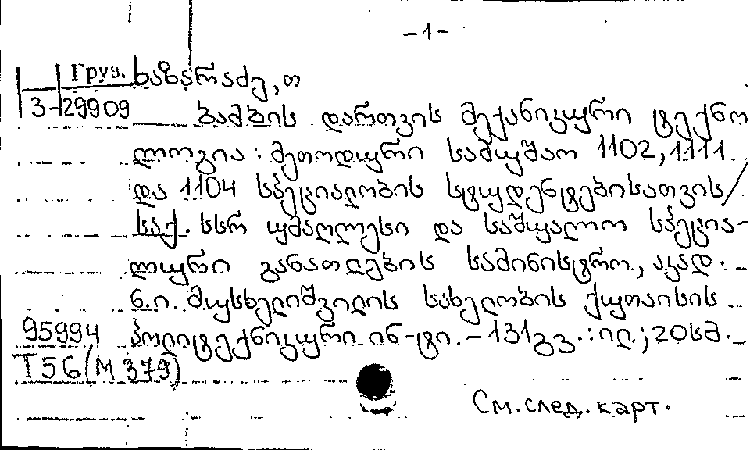 -1-
Груз. ნაზარაძე, თ
3-29909 ბამბის დართვის მექანიკური ტექნო
ლოგია: მეთოდური სამუშაო 1102, 1111
და 1104 სპეციალობის სტუდენტებისათვის/
საქ. სსრ უმაღლესი და საშუალო სპეცია-
ლური განათლების სამინისტრო, აკად.
ნ.ი. მუსხელიშვილის სახელობის ქუთაისის
95994 პოლიტექნიკური ინ-ტი. - 131გვ.: ილ; 20სმ.
Т56(М379)
См. след. карт.